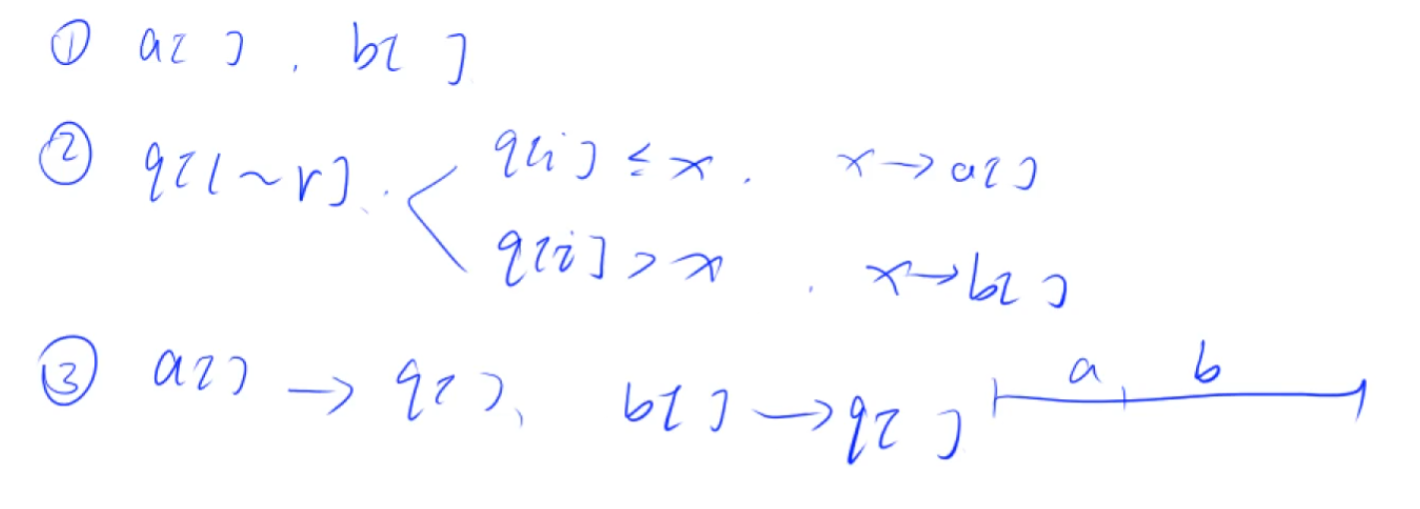 ① a[ ] , b[ ]
② q[l~r] . q[i] ≤ x . x→a[ ]
q[i] > x . x→b[ ]
③ a[ ] → q[ ], b[ ] → q[ ] a b